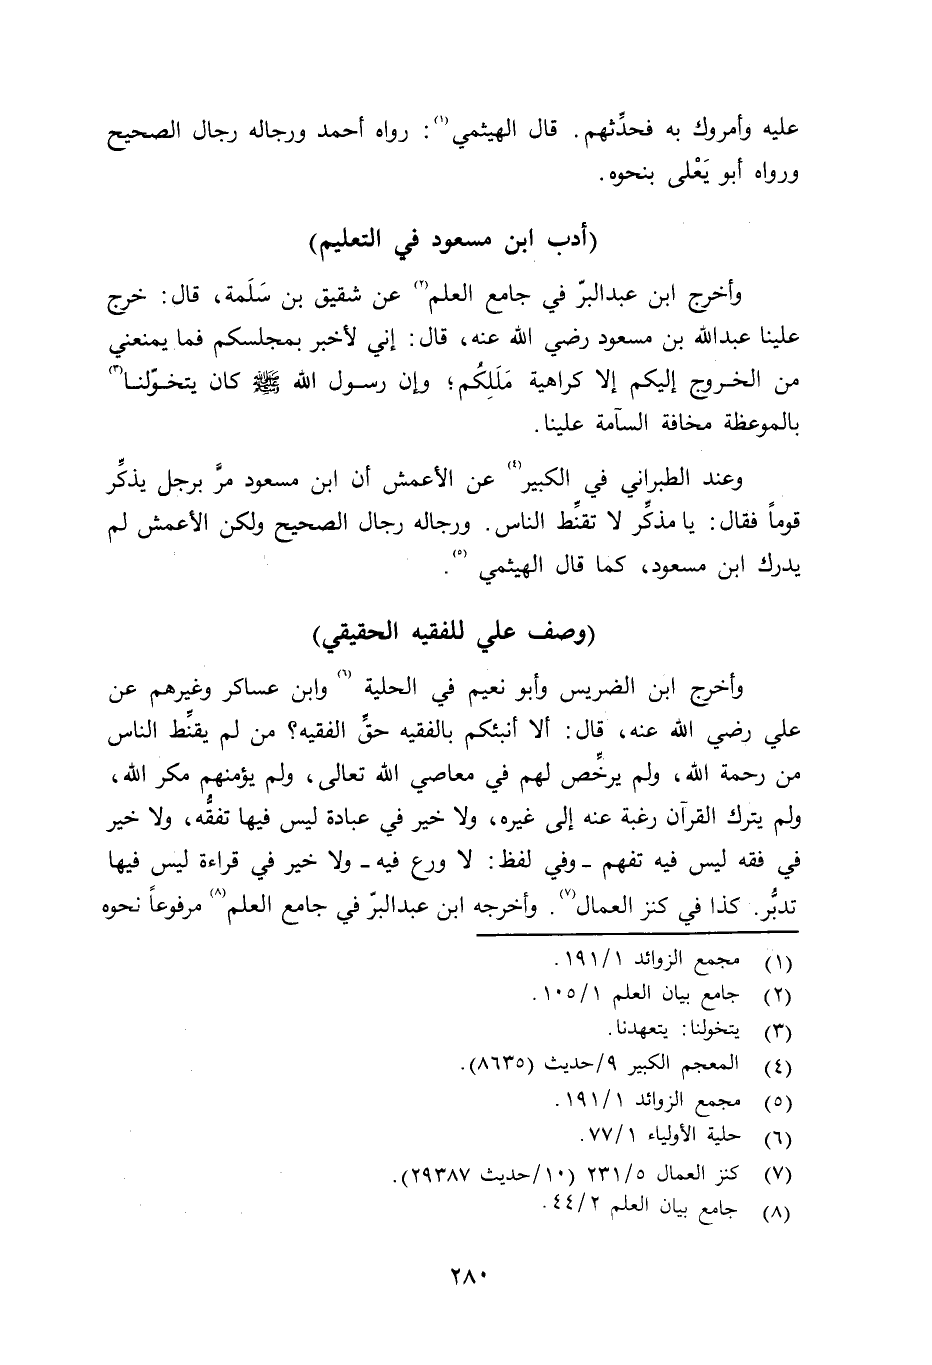 عليه وأمروك به فحدِّثهم. قال الهيثمي(١): رواه أحمد ورجاله رجال الصحيح
ورواه أبو يَعْلى بنحوه.
(أدب ابن مسعود في التعليم)
وأخرج ابن عبدالبرّ في جامع العلم(٢) عن شقيق بن سَلَمة، قال: خرج
علينا عبدالله بن مسعود رضي الله عنه، قال: إني لأخبر بمجلسكم فما يمنعني
من الخروج إليكم إلا كراهية مَلَلِكُم؛ وإن رسول الله ﷺ كان يتخوّلنا(٣)
بالموعظة مخافة السآمة علينا.
وعند الطبراني في الكبير(٤) عن الأعمش أن ابن مسعود مرَّ برجل يذكِّر
قوماً فقال: يا مذكِّر لا تقنِّط الناس. ورجاله رجال الصحيح ولكن الأعمش لم
يدرك ابن مسعود، كما قال الهيثمي (٥).
(وصف علي للفقيه الحقيقي)
وأخرج ابن الضريس وأبو نعيم في الحلية (٦) وابن عساكر وغيرهم عن
علي رضي الله عنه، قال: ألا أنبئكم بالفقيه حقِّ الفقيه؟ من لم يقنِّط الناس
من رحمة الله، ولم يرخِّص لهم في معاصي الله تعالى، ولم يؤمنهم مكر الله،
ولم يترك القرآن رغبة عنه إلى غيره، ولا خير في عبادة ليس فيها تفقُّه، ولا خير
في فقه ليس فيه تفهم ـ وفي لفظ: لا ورع فيه ـ ولا خير في قراءة ليس فيها
تدبُّر. كذا في كنز العمال(٧). وأخرجه ابن عبدالبرّ في جامع العلم(٨) مرفوعاً نحوه
(١) مجمع الزوائد ١/ ١٩١.
(٢) جامع بيان العلم ١/ ١٠٥.
(٣) يتخولنا: يتعهدنا.
(٤) المعجم الكبير ٩/حديث (٨٦٣٥).
(٥) مجمع الزوائد ١/ ١٩١.
(٦) حلية الأولياء ١/ ٧٧.
(٧) كنز العمال ٥/ ٢٣١ (١٠/حديث ٢٩٣٨٧).
(٨) جامع بيان العلم ٢/ ٤٤.
٢٨٠